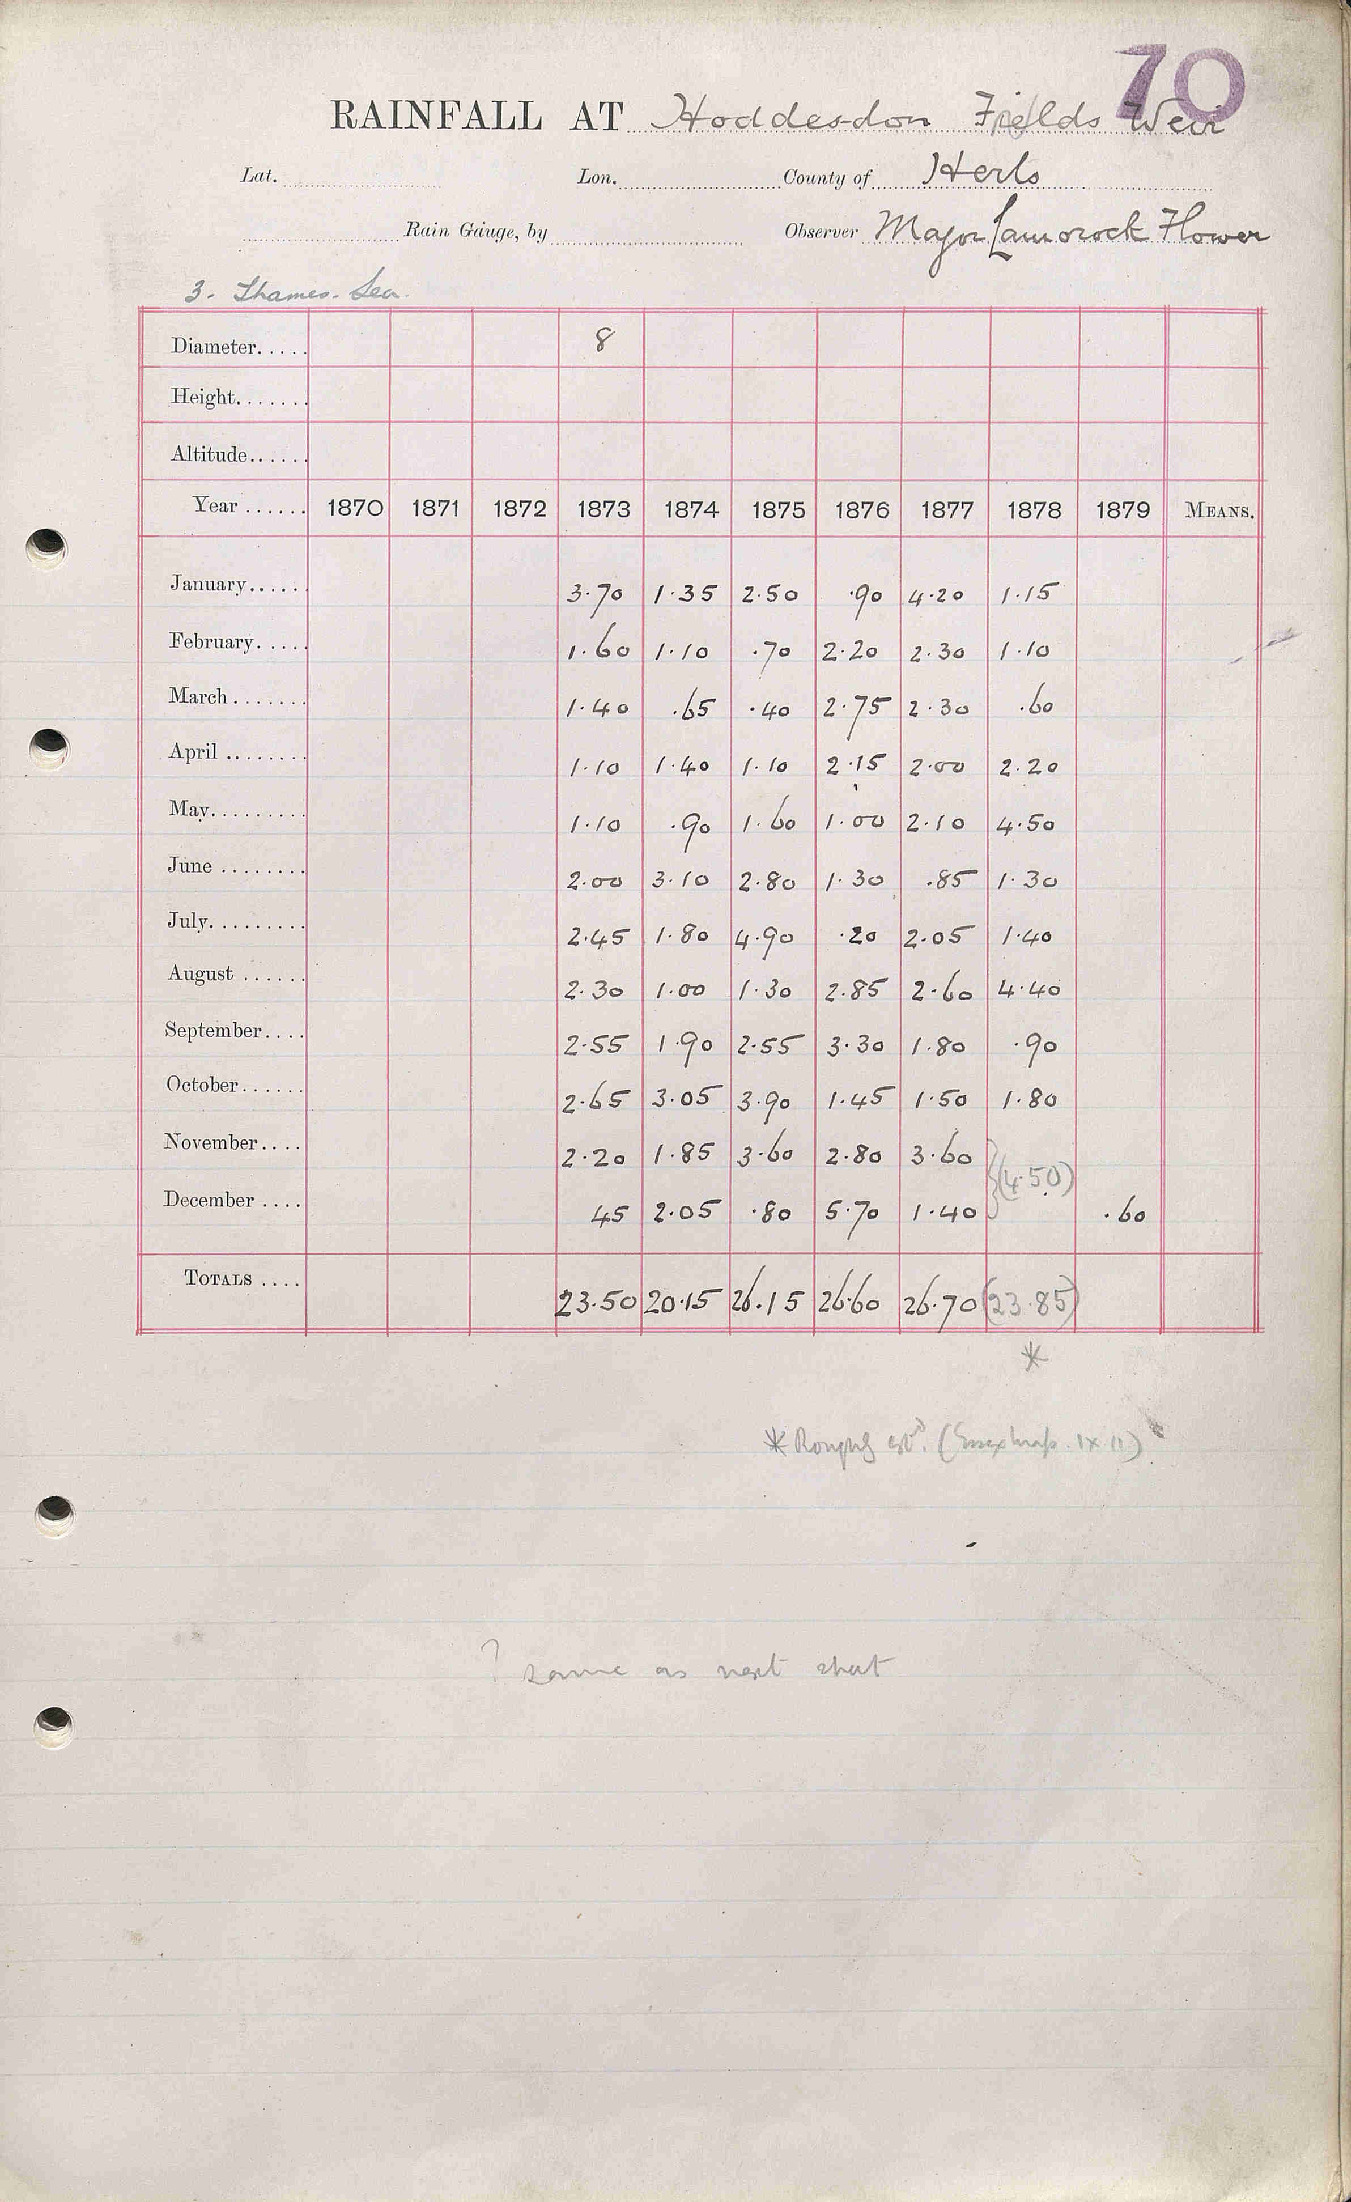 70
RAINFALL AT Hoddesdon Fields Weir
Lat. Lon. County of Herts
Rain Gauge, by Observer Major Lamorock Flower
3. Thames. Lea.
Diameter..... 8
Height.......
Altitude......
Year ...... 1870 1871 1872 1873 1874 1875 1876 1877 1878 1879 MEANS.
January...... 3.70 1.35 2.50 .90 4.20 1.15
February..... 1.60 1.10 .70 2.20 2.30 1.10
March ....... 1.40 .65 .40 2.75 2.30 .60
April ........ 1.10 1.40 1.10 2.15 2.00 2.20
May......... 1.10 .90 1.60 1.00 2.10 4.50
June ........ 2.00 3.10 2.80 1.30 .85 1.30
July......... 2.45 1.80 4.90 .20 2.05 1.40
August ...... 2.30 1.00 1.30 2.85 2.60 4.40
September.... 2.55 1.90 2.55 3.30 1.80 .90
October...... 2.65 3.05 3.90 1.45 1.50 1.80
November.... 2.20 1.85 3.60 2.80 3.60 (4.50)
December .... 45 2.05 .80 5.70 1.40 .60
TOTALS .... 23.50 20.15 26.15 26.60 26.70 (23.85)
*
* Roughly estd. (Essex IX.11)
? same as next sheet